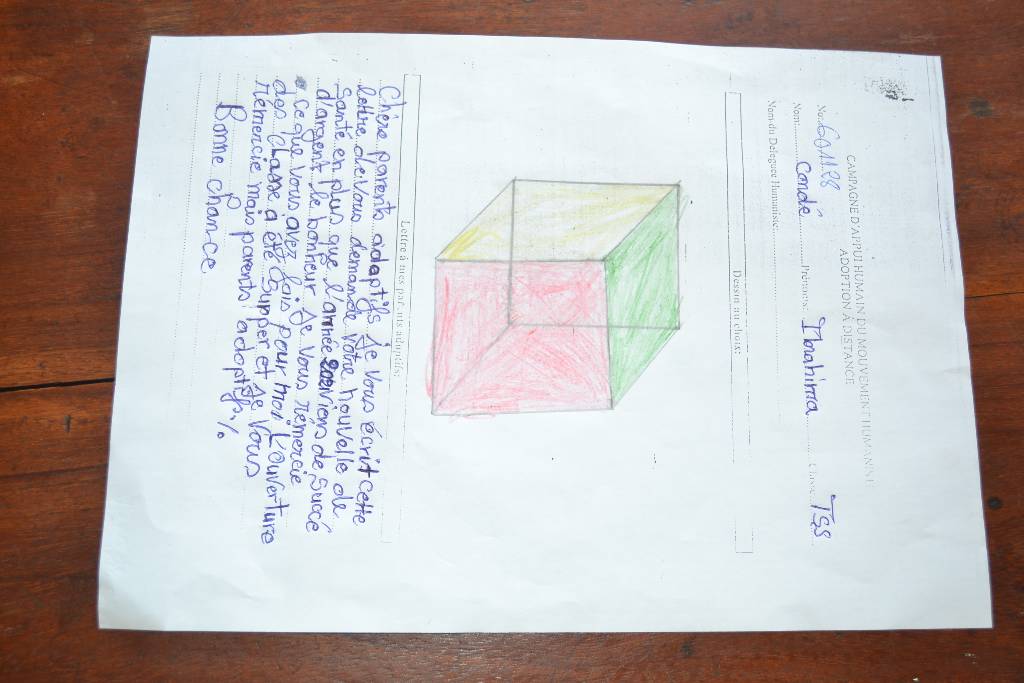 CAMPAGNE D'APPUI HUMAIN DU MOUVEMENT HUMANISTE
ADOPTION À DISTANCE
No: 6011.28
Nom: Condé Prénoms: Ibrahima Classe: TSS
Nom du Délégué Humaniste:
Dessin au choix:
Lettre à mes parents adoptifs:
Chère parents adoptifs je vous écrit cette
lettre de vous demande votre nouvelle de
santé en plus que l'année viens de succé
d'argent le bonheur. Je vous rémercie
ce que vous avez fais pour moi L'ouverture
des classe a été supper et je vous
rémercie mais parents adoptifs./.
Bonne chan-ce